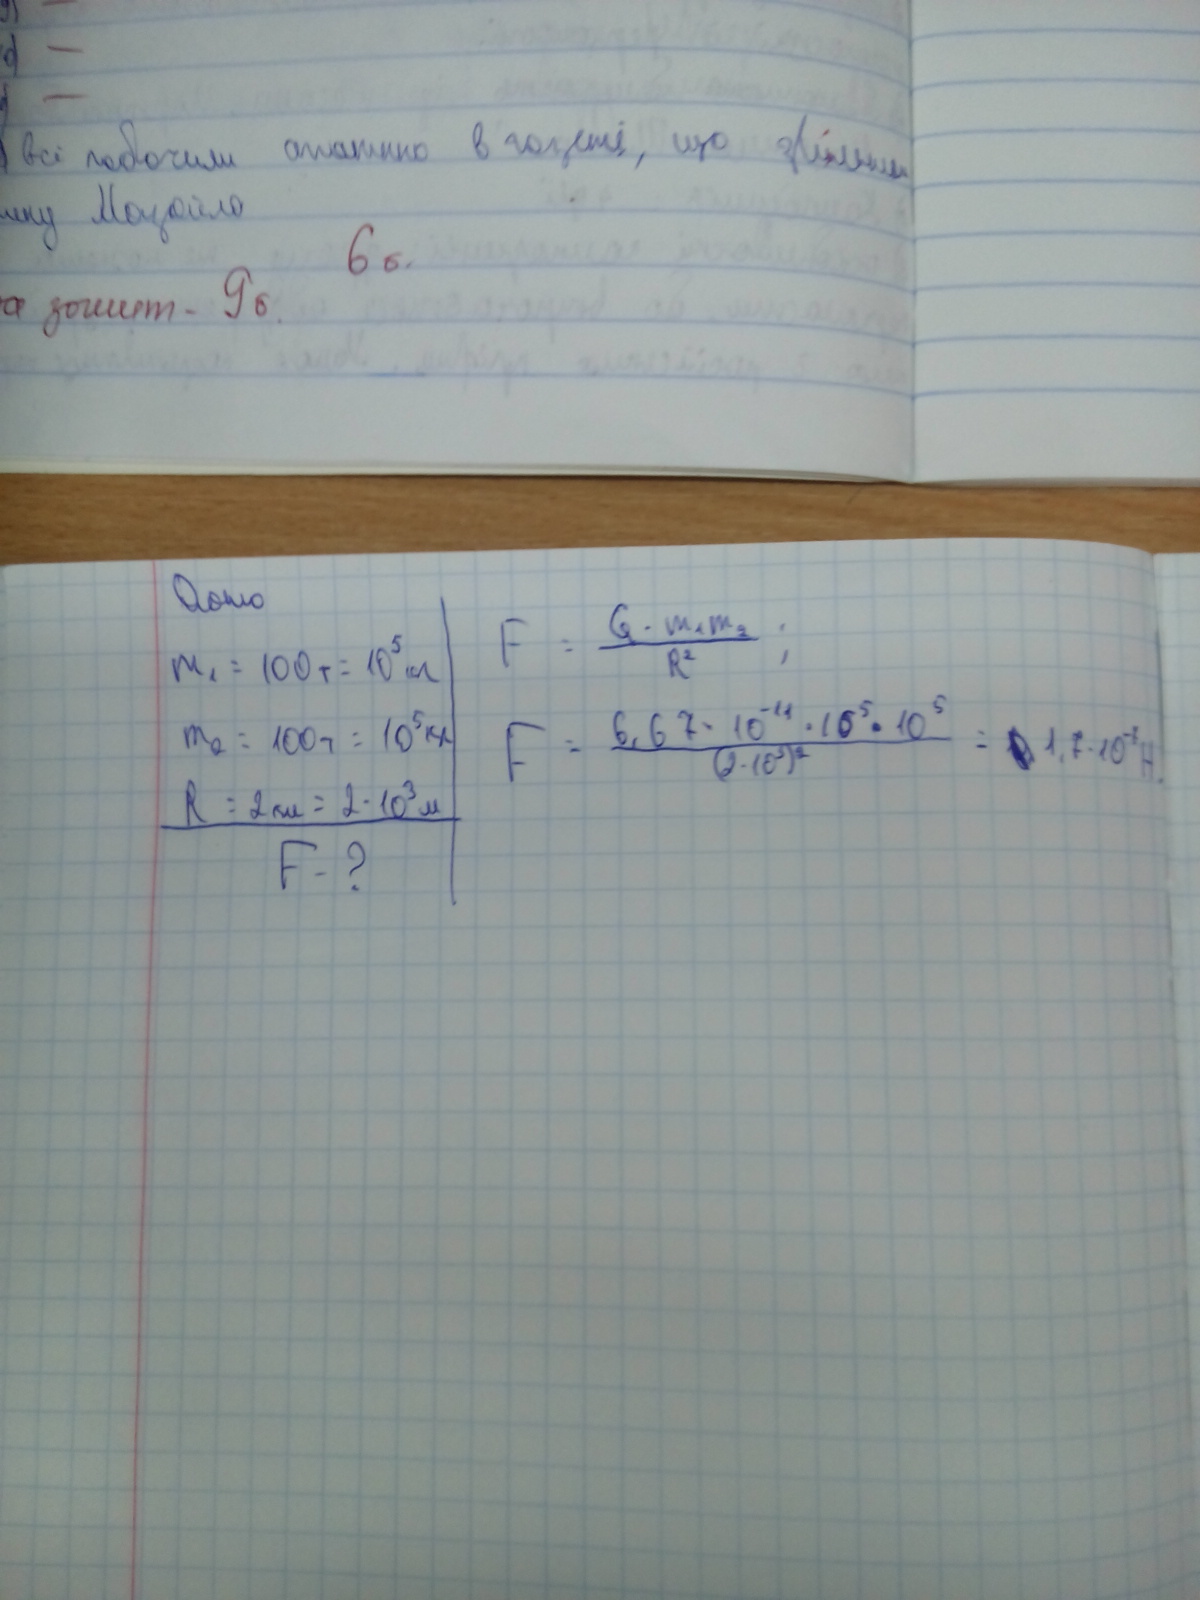 всі побачили статтю в газеті, що змінили
Мазайло
6 б.
за зошит - 9 б.
Дано
m₁ = 100т = 10⁵ кг
m₂ = 100т = 10⁵ кг
R = 2км = 2·10³ м
F - ?
F = G · m₁m₂ / R² ;
F = 6,67 · 10⁻¹¹ · 10⁵ · 10⁵ / (2·10³)² = 1,7·10⁻⁷ Н.